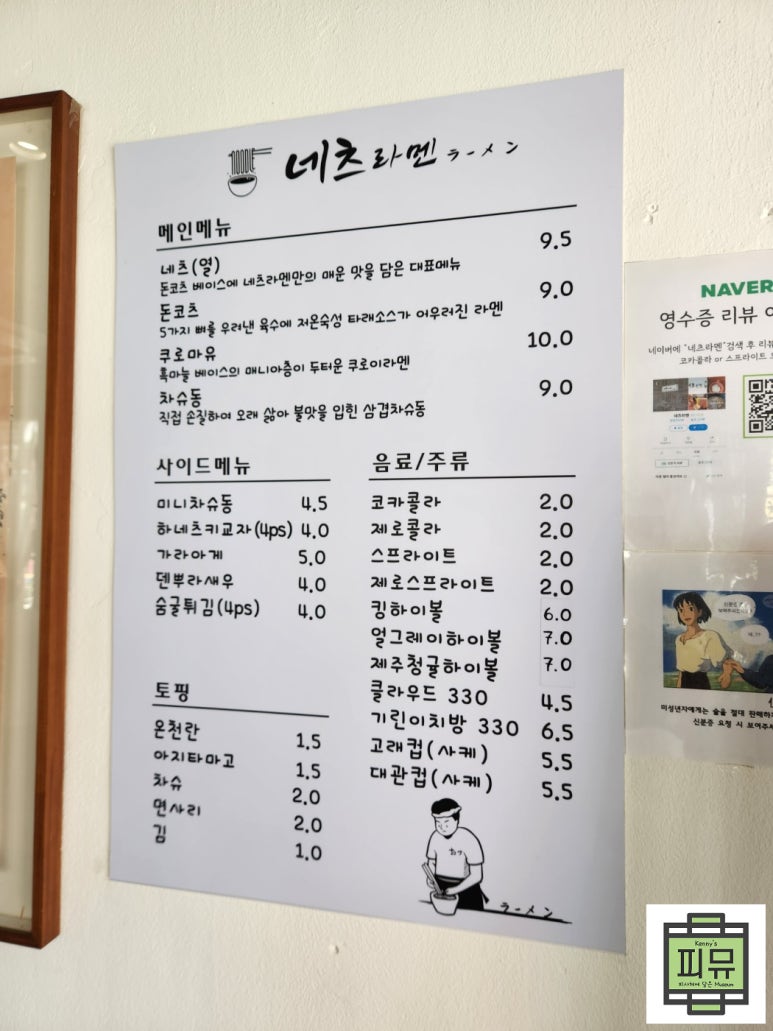 NOODLE
네츠라멘 ラーメン
메인메뉴
네츠(열) 9.5
돈코츠 베이스에 네츠라멘만의 매운 맛을 담은 대표메뉴
돈코츠 9.0
5가지 뼈를 우려낸 육수에 저온숙성 타래소스가 어우러진 라멘
쿠로마유 10.0
흑마늘 베이스의 매니아층이 두터운 쿠로이라멘
차슈동 9.0
직접 손질하여 오래 삶아 불맛을 입힌 삼겹차슈동
사이드메뉴
미니차슈동 4.5
하네츠키교자(4ps) 4.0
가라아게 5.0
덴뿌라새우 4.0
숨굴튀김(4ps) 4.0
토핑
온천란 1.5
아지타마고 1.5
차슈 2.0
면사리 2.0
김 1.0
음료/주류
코카콜라 2.0
제로콜라 2.0
스프라이트 2.0
제로스프라이트 2.0
킹하이볼 6.0
얼그레이하이볼 7.0
제주청귤하이볼 7.0
클라우드 330 4.5
기린이치방 330 6.5
고래컵(사케) 5.5
대관컵(사케) 5.5
ラーメン
NAVER
영수증 리뷰 이
네이버에 "네츠라멘"검색 후 리뷰
코카콜라 or 스프라이트
네츠라멘
미성년자에게는 술을 절대 판매하
신분증 요청 시 보여주시
Kenny's
피뮤
피사체에 담은 Museum